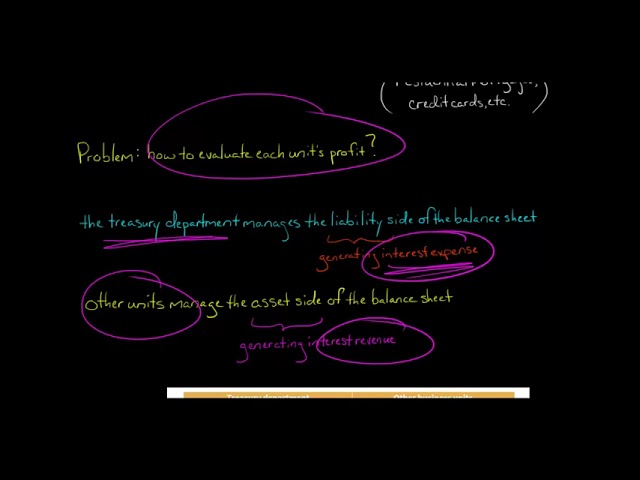 credit cards, etc.
Problem: how to evaluate each unit's profit?
the treasury department manages the liability side of the balance sheet
generating interest expense
other units manage the asset side of the balance sheet
generating interest revenue
Treasury department Other business units